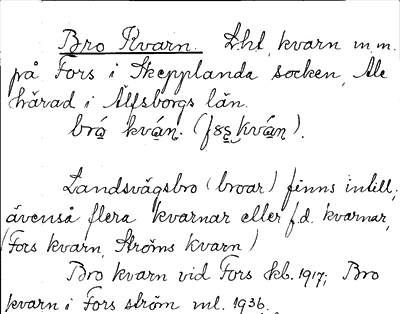 Bro Kvarn. Lht, kvarn m.m.
på Fors i Skepplanda socken, Ale
härad i Älfsborgs län.
brá kván. (fɷʂ kván).
Landsvägsbro (broar) finns intill;
ävenså flera kvarnar eller f.d. kvarnar,
(Fors kvarn, Ströms Kvarn)
Bro kvarn vid Fors kb. 1917; Bro
kvarn i Fors ström ml. 1936.